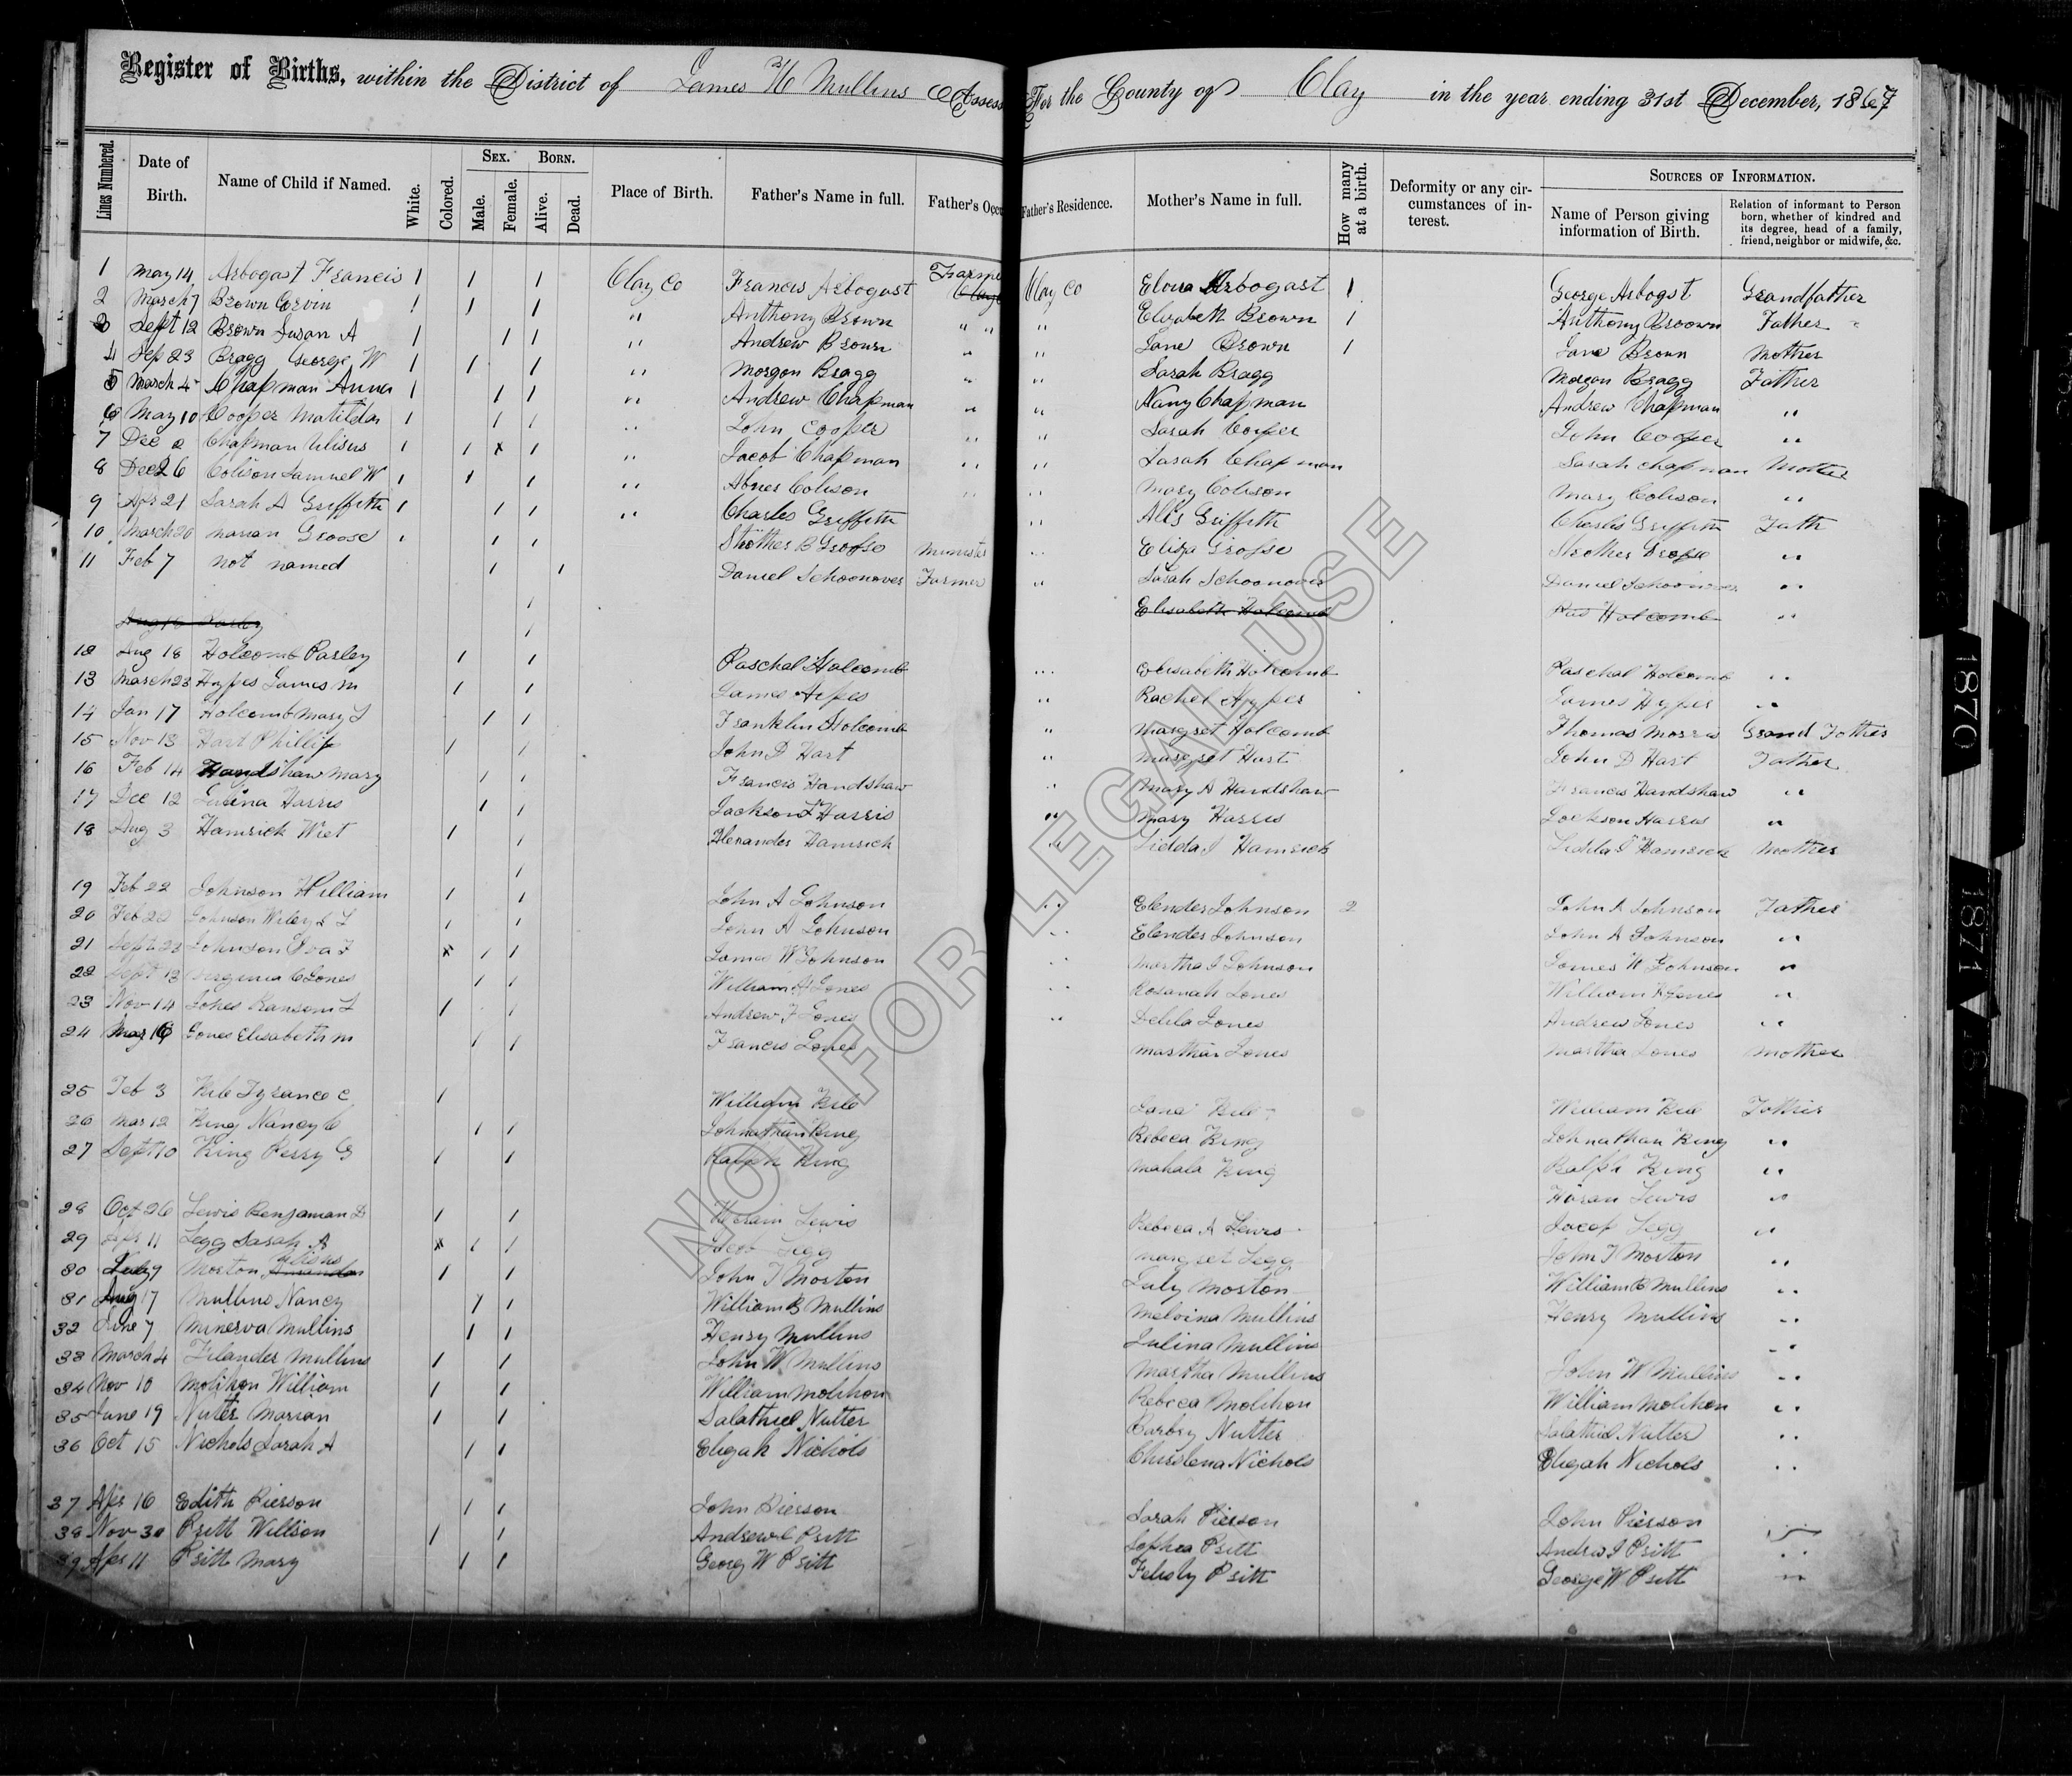 Register of Births, within the District of James H Mullins Assess
For the County of Clay in the year ending 31st December, 1867
Lines Numbered. Date of Birth. Name of Child if Named. White. Colored. SEX. Male. Female. BORN. Alive. Dead. Place of Birth. Father's Name in full. Father's Occu Father's Residence. Mother's Name in full. How many at a birth. Deformity or any circumstances of interest. SOURCES OF INFORMATION. Name of Person giving information of Birth. Relation of informant to Person born, whether of kindred and its degree, head of a family, friend, neighbor or midwife, &c.
1 May 14 Arbogast Francis 1 1 1 Clay Co Francis Arbogast Farme Clay Co Arbogast 1 George Arbogst Grandfather
2 March 7 Brown 1 1 1 " Anthony Brown " " " Elizabeth Brown 1 Anthony Broown Father
3 Sept 12 Brown Susan A 1 1 1 " Andrew Brown " " Jane Brown 1 Jane Brown Mother
4 Sep 23 Bragg George W 1 1 1 " Morgon Bragg " " Sarah Bragg Morgon Bragg Father
5 March 4 Chapman Anna 1 1 1 " Andrew Chapman " " Nany Chapman Andrew Chapman "
6 May 10 Cooper Matilda 1 1 1 " John Cooper " " Sarah Cooper John Cooper "
7 Dec Chapman Ulisus 1 1 x 1 " Jacob Chapman " " Sarah Chapman Sarah Chapman Mother
8 Dec 26 Colison Samuel W 1 1 1 " Abner Colison " " Mary Colison Mary Colison "
9 Apr 21 Sarah A Griffith 1 1 1 " Charles Griffith " Alis Griffith Charles Griffith Fath
10 March 20 Marian Groose 1 1 1 Strother B Grose Minister " Eliza Grose Strother Grose "
11 Feb 7 not named 1 1 Daniel Schoonover Farmer " Sarah Schoonover Daniel Schoonover "
Aug 18 Parley Elisabeth Holcomb Holcomb "
12 Aug 18 Holcomb Parley 1 1 Paschal Holcomb " Elisabeth Holcomb Paschal Holcomb "
13 March 23 Hypes James M 1 1 James Hypes " Rachel Hypes James Hypes "
14 Jan 17 Holcomb Mary 1 1 Franklin Holcomb " Margret Holcomb Thomas Morris Grand Father
15 Nov 13 Hart Phillip 1 1 John D Hart " Margret Hart John D Hart Father
16 Feb 14 Handshaw Mary 1 1 Francis Handshaw " Mary A Handshaw Francis Handshaw "
17 Dec 12 Julina Harris 1 1 Jackson Harris " Mary Harris Jackson Harris "
18 Aug 3 Hamrick Wiet 1 1 Alexander Hamrick " Hamrick Hamrick Mother
19 Feb 22 Johnson William 1 1 John A Johnson " Elender Johnson 2 John A Johnson Father
20 Feb 22 Johnson Wiley 1 1 John A Johnson " Elender Johnson John A Johnson "
21 Sept 23 Johnson x 1 1 James W Johnson " Martha J Johnson James W Johnson "
22 Sept 13 Virginia C Jones 1 1 William H Jones " Rosanah Jones William H Jones "
23 Nov 14 Jones Ransom 1 1 Andrew J Jones " Delila Jones Andrew Jones "
24 Mar 16 Jones Elisabeth M 1 1 Francis Jones Marthan Jones Martha Jones Mother
25 Feb 3 1 William Jane William Father
26 Mar 12 King Nancy C 1 1 Johnathan King Rebeca King Johnathan King "
27 Sept 10 King Perry G 1 1 Ralph King Mahala King Ralph King "
28 Oct 26 Lewis Benjaman 1 1 Lewis Rebeca A Lewis Lewis "
29 Apr 11 Legg Sarah A x 1 1 Jacob Legg Margret Legg Jacop Legg "
30 July 9 Morton 1 1 John T Morton July Morton John T Morton "
31 Aug 17 Mullins Nancy 1 1 William B Mullins Melvina Mullins William Mullins "
32 June 7 Minerva Mullins 1 1 Henry Mullins Julina Mullins Henry Mullins "
33 March 4 Filander Mullins 1 1 John W Mullins Martha Mullins John W Mullins "
34 Nov 10 Molihon William 1 1 William Molihon Rebeca Molihon William Molihon "
35 June 19 Nuter Marian 1 1 Salathiel Nutter Barbry Nutter Salathiel Nutter "
36 Oct 15 Nichols Sarah A 1 1 Eligah Nichols Nichols Eligah Nichols "
37 Apr 16 Edith Pierson 1 1 John Pierson Sarah Pierson John Pierson "
38 Nov 30 Pritt Willson 1 1 Andrew Pritt Sophia Pritt Andrew Pritt "
39 Apr 11 Pritt Mary 1 1 Georg W Pritt Pritt George W Pritt "
NOT FOR LEGAL USE
1870
1871